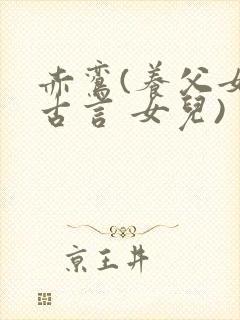 赤鸞(養父女
古言 女兒)
京王井